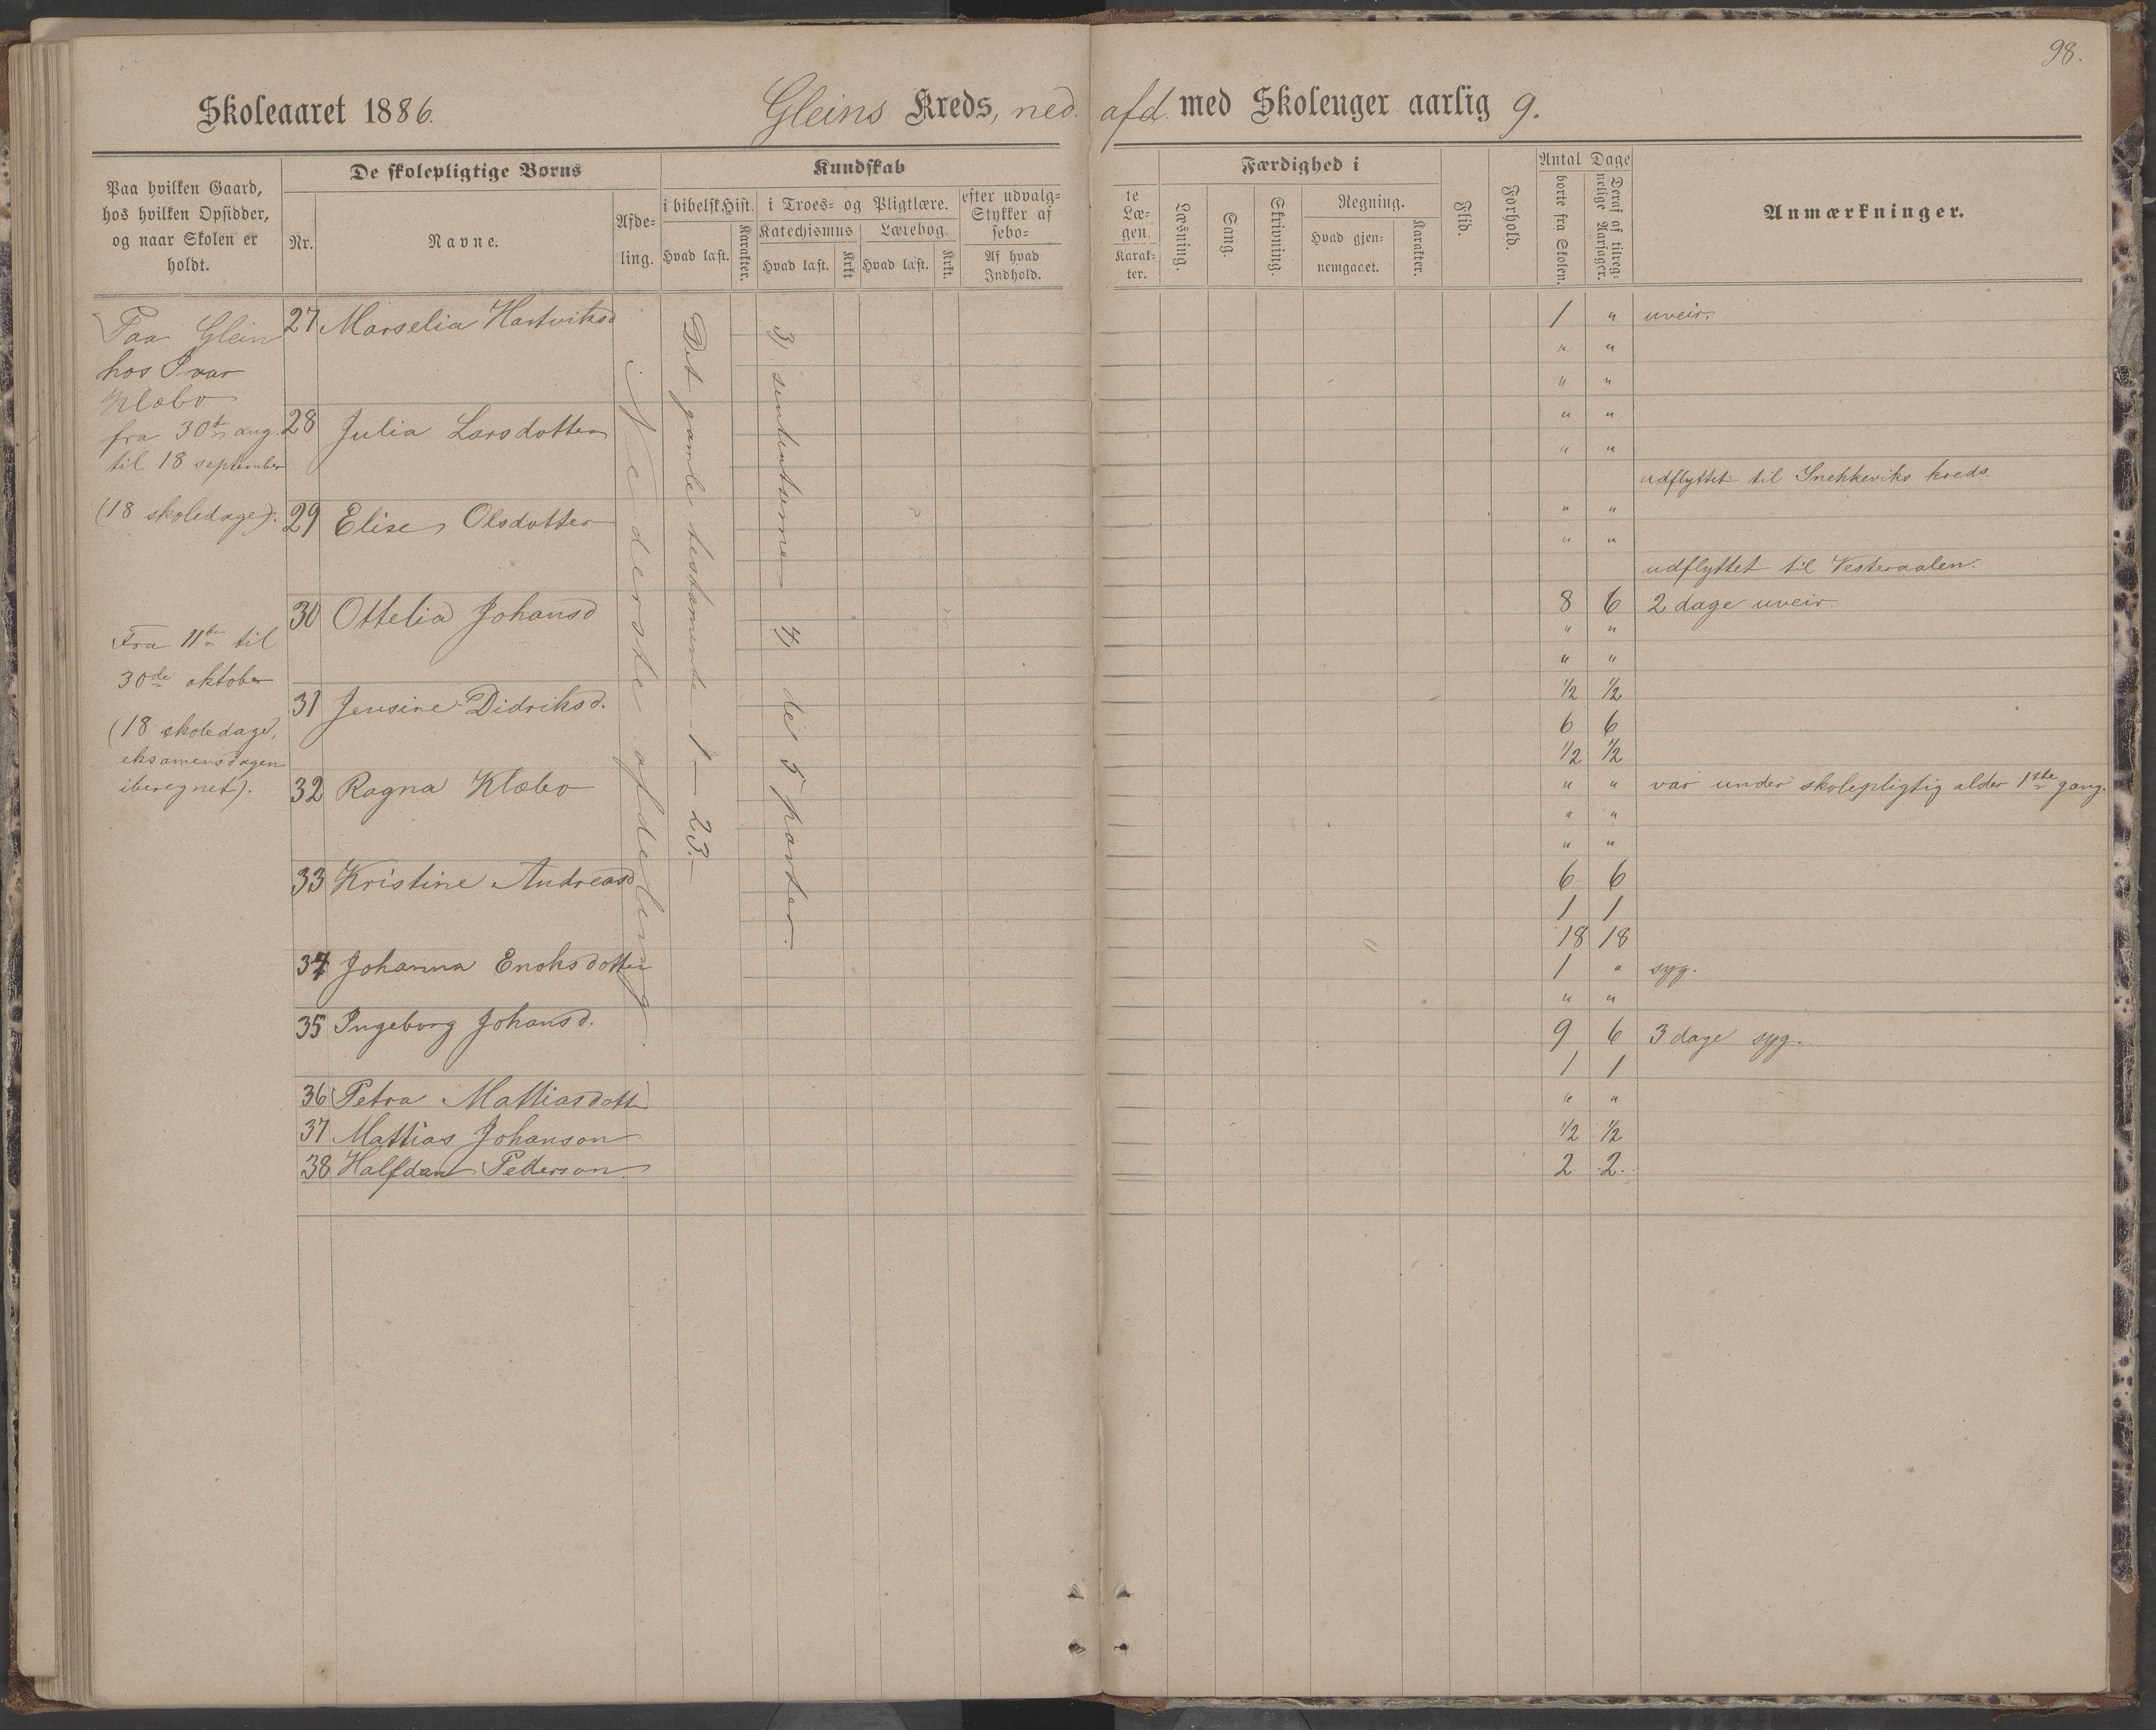 98.
Skoleaaret 1886. Gleins Kreds, ned. afd. med Skoleuger aarlig 9.
Paa hvilken Gaard, hos hvilken Opsidder, og naar Skolen er holdt.
De skolepligtige Børns
Nr.
Navne.
Afde-
ling.
Kundskab
i bibelsk Hist.
Hvad læst.
Karakter.
i Troes- og Pligtlære.
Katechismus
Hvad læst.
Krkt
Lærebog.
Hvad læst.
Krkt.
efter udvalg-
Stykker af
sebo-
Af hvad
Indhold.
te
Læ-
gen.
Karak-
ter.
Færdighed i
Læsning.
Sang.
Skrivning.
Regning.
Hvad gjen-
nemgaaet.
Karakter.
Flid.
Forhold.
Antal Dage
borte fra Skolen.
Deraf af tilreg-
nelige Aarsager.
Anmærkninger.
Paa Glein
hos Ivar
Klæbo
fra 30te aug.
til 18 september
(18 skoledage).
Fra 11te til
30de oktober
(18 skoledage,
eksamensdagen
iberegnet).
27 Marselia Hartviksd
28 Julia Larsdotter
29 Elise Olsdotter
30 Ottelia Johansd
31 Jensine Didriksd.
32 Ragna Klæbo
33 Kristine Andreasd
34 Johanna Enoksdotter
35 Ingeborg Johansd.
36 Petra Mattiasdotter
37 Mattias Johanson
38 Halfdan Pederson
Nederste afdeling.
Det gamle testamente 1 — 23.
3) 4) de 5 parter.
1 " uveir.
" "
" "
" "
" "
udflyttet til Snekkeviks kreds.
" "
" "
udflyttet til Vesteraalen.
8 6 2 dage uveir.
" "
" "
1/2 1/2
6 6
1/2 1/2
" " var under skolepligtig alder 1ste gang.
" "
" "
6 6
1 1
18 18
1 " syg.
" "
9 6 3 dage syg.
1 1
" "
1/2 1/2
2 2.